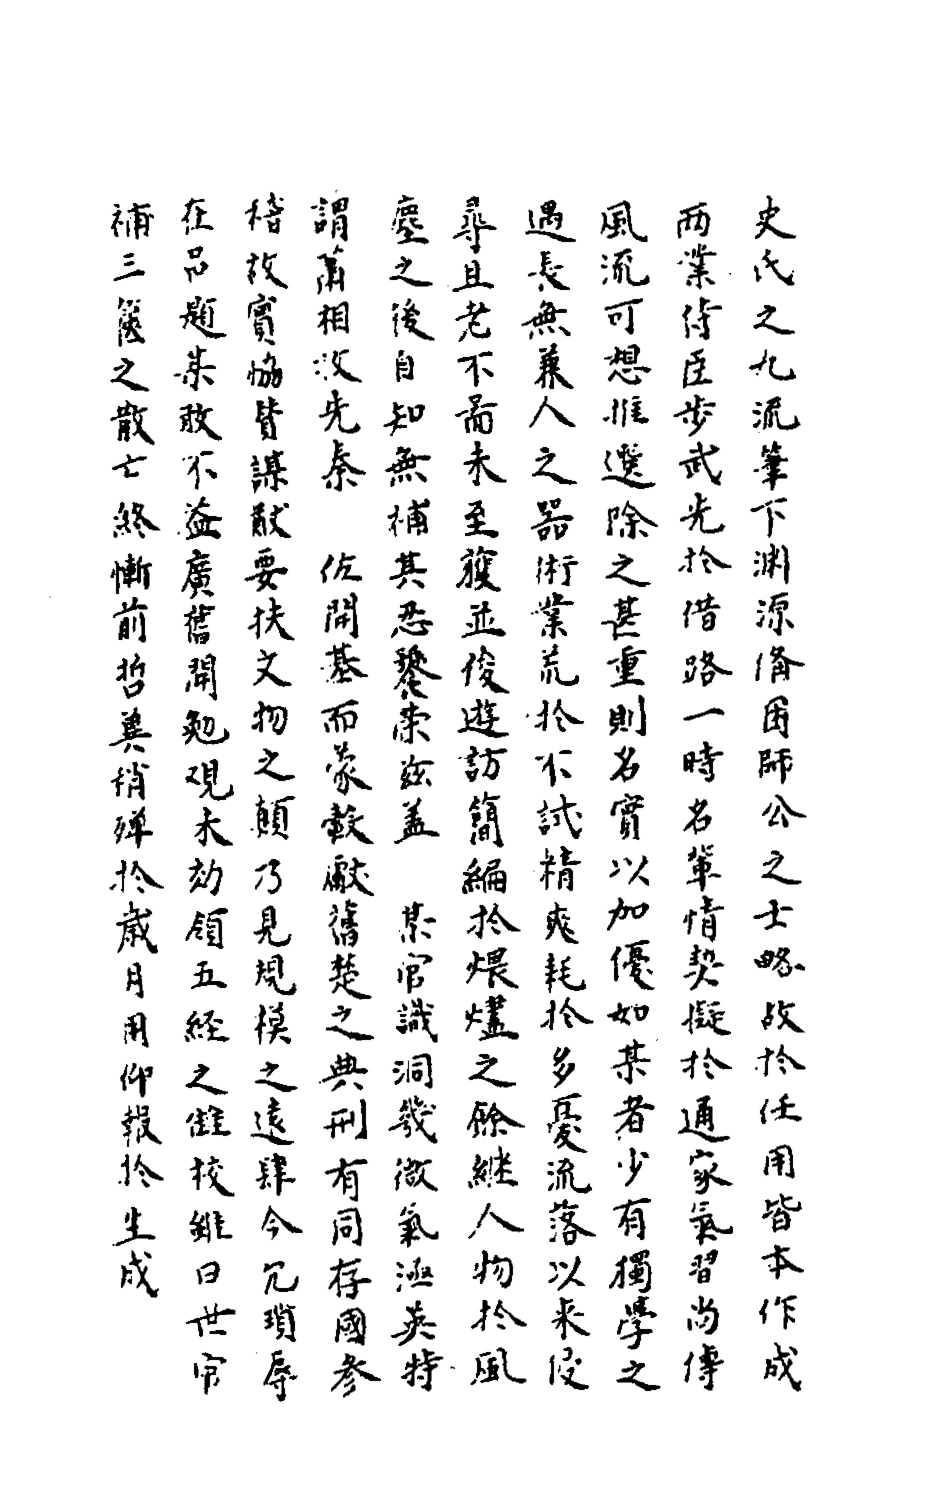 史氏之九流筆下淵源備困師公之士略故扵任用皆本作成
両業侍臣步武光扵借路一時名輩情契擬扵通家氣習尚傳
風流可想惟選除之甚重則名實以加優如某者少有獨學之
遇長無兼人之器術業荒扵不試精爽耗扵多憂流落以来侵
尋且老不啚未至獲並俊遊訪簡編扵煨燼之餘継人物扵風
塵之後自知無補其忍饕榮玆盖 某官識洞幾微氣涵英特
謂蕭相收先秦 佐開基而蒙轂獻舊楚之典刑有同存國参
稽故實恊賛謀猷要扶文物之顛乃見規模之遠肆今冗瑣辱
在品題某敢不益廣舊聞勉硯未効領五經之讎校雖曰世官
補三篋之散亡終慚前哲兾稍殫扵歳月用仰報扵生成